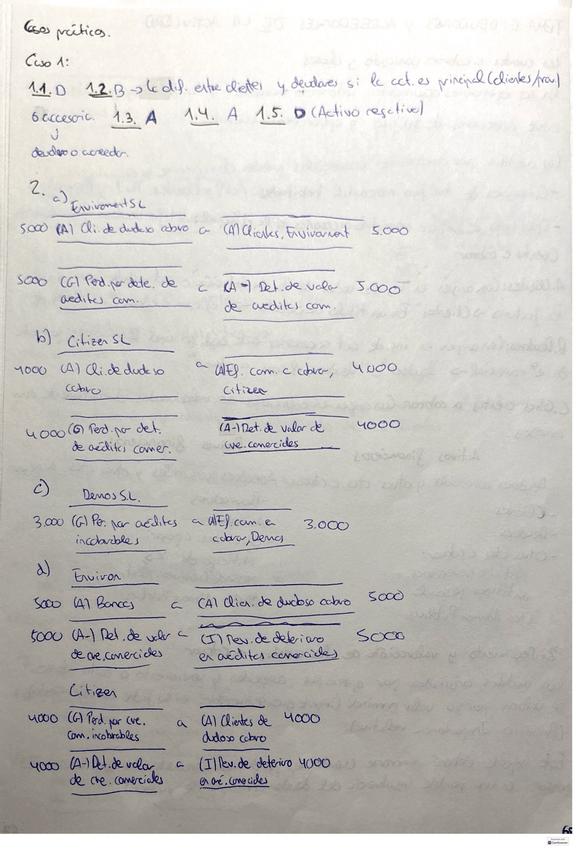 Casos prácticos.
Caso 1:
1.1. D 1.2. B → la dif. entre clientes y deudores si la act. es principal (clientes/prov.)
ó accesoria. 1.3. A 1.4. A 1.5. D (Activo
↓
deudor o acreedor.
2.
a) Enviroment SL
5000 (A) Cli. de dudoso cobro a (A) Clientes, Enviroment 5.000
5000 (G) Perd. por dete. de a (A-) Det. de valor 5.000
créditos com. de creditos com.
b) Citizen SL
4000 (A) Cli. de dudoso a (A) Ef. com. a cobrar, 4000
cobro Citizen
4000 (G) Perd. por det. (A-) Det. de valor de 4000
de créditos comer. cre. comerciales
c) Demos S.L.
3.000 (G) Per. por créditos a (A) Ef. com. a 3.000
incobrables cobrar, Demos
d) Environ
5000 (A) Bancos a (A) Clien. de dudoso cobro 5000
5000 (A-) Det. de valor a (I) Rev. de deterioro 5000
de cre. comerciales en créditos comerciales
Citizen
4000 (G) Perd. por cre. a (A) Clientes de 4000
com. incobrables dudoso cobro
4000 (A-) Det. de valor a (I) Rev. de deterioro 4000
de cre. comerciales en cré. comerciales